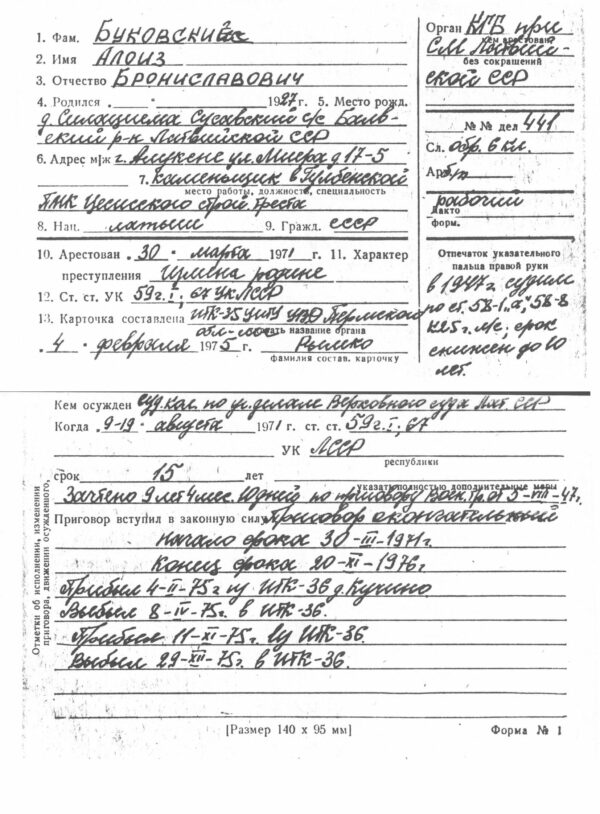 1. Фам. Буковскийс
2. Имя Алоиз
3. Отчество Брониславович
4. Родился . 1927 г. 5. Место рожд.
д. Силациема Сусавский с/с Балв-
ский р-н Латвийской ССР
6. Адрес м/ж г. Алуксне ул. Миера д 17-5
7. Каменщик в Гулбенской
место работы, должность, специальность
ПМК Цесисского строй. Треста
8. Нац. латыш 9. Гражд. СССР
10. Арестован . 30 . марта 1971 г. 11. Характер
преступления Измена родине
12. Ст. ст. УК 59 г. I; 67 УК ЛССР
13. Карточка составлена ИТК-35 УИТУ УВД Пермского
обл-
название органа
. 4 . февраля 1975 г. Рымко
фамилия состав. карточку
Орган КГБ при
кем арестован
СМ Латвий-
без сокращений
ской ССР
№ № дел 441
Сл. обр. 6 кл.
Ар б/п
рабочий
Дакто
форм.
Отпечаток указательного
пальца правой руки
в 1947 г. судим
по ст. 58-1 "а", 58-8
к 25 г. л/с, срок
снижен до 10
лет.
Кем осужден суд. кол. по уг. делам Верховного суда Лат. ССР
Когда . 9-19 . августа 1971 г. ст. ст. 59 г. I; 67
УК ЛССР
республики
срок 15 лет
указать полностью дополнительные меры
Зачтено 9 лет 4 мес. 10 дней по приговору Воен. Тр. от 5-VIII-47 г.
Приговор вступил в законную силу Приговор окончательный
Начало срока 30-III-1971 г.
Конец срока 20-XI-1976 г.
Прибыл 4-II-75 г из ИТК-36 д. Кучино
Выбыл 8-IV-75 г. в ИТК-36.
Прибыл 11-XI-75 г. из ИТК-36.
Выбыл 29-XII-75 г. в ИТК-36.
Отметки об исполнении, изменении
приговора, движении осужденного,
[Размер 140 х 95 мм] Форма № 1